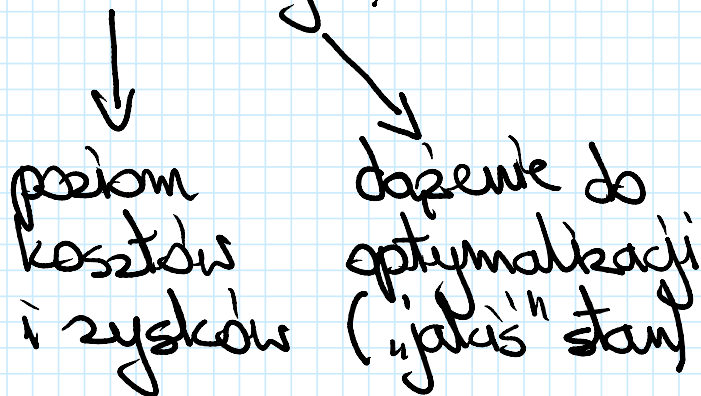 poziom
kosztów
i zysków
dążenie do
optymalizacji
(„jakiś" stan)